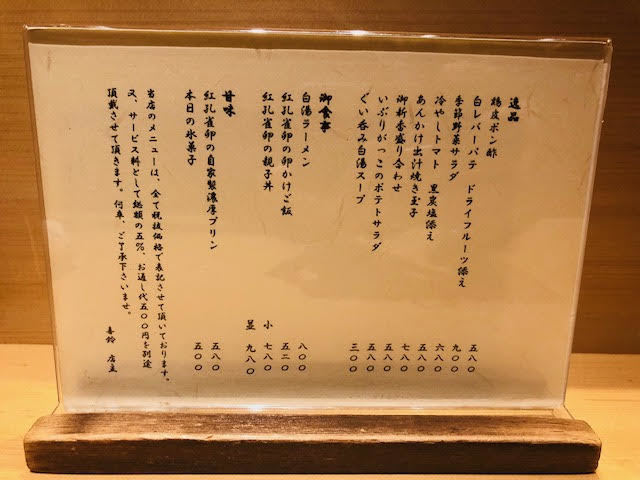 逸品
鶏皮ポン酢 五八〇
白レバーパテ ドライフルーツ添え 九〇〇
季節野菜サラダ 六八〇
冷やしトマト 黒炭塩添え 五八〇
あんかけ出汁焼き玉子 七八〇
御新香盛り合わせ 五八〇
いぶりがっこのポテトサラダ 五八〇
ぐい呑み白湯スープ 三〇〇
御食事
白湯ラーメン 八〇〇
紅孔雀卵の卵かけご飯 五二〇
紅孔雀卵の親子丼 小 七八〇
並 九八〇
甘味
紅孔雀卵の自家製濃厚プリン 五八〇
本日の氷菓子 五〇〇
当店のメニューは、全て税抜価格で表記させて頂いております。
又、サービス料として総額の五%、お通し代五〇〇円を別途
頂戴させて頂きます。何卒、ご了承下さいませ。
喜鈴 店主